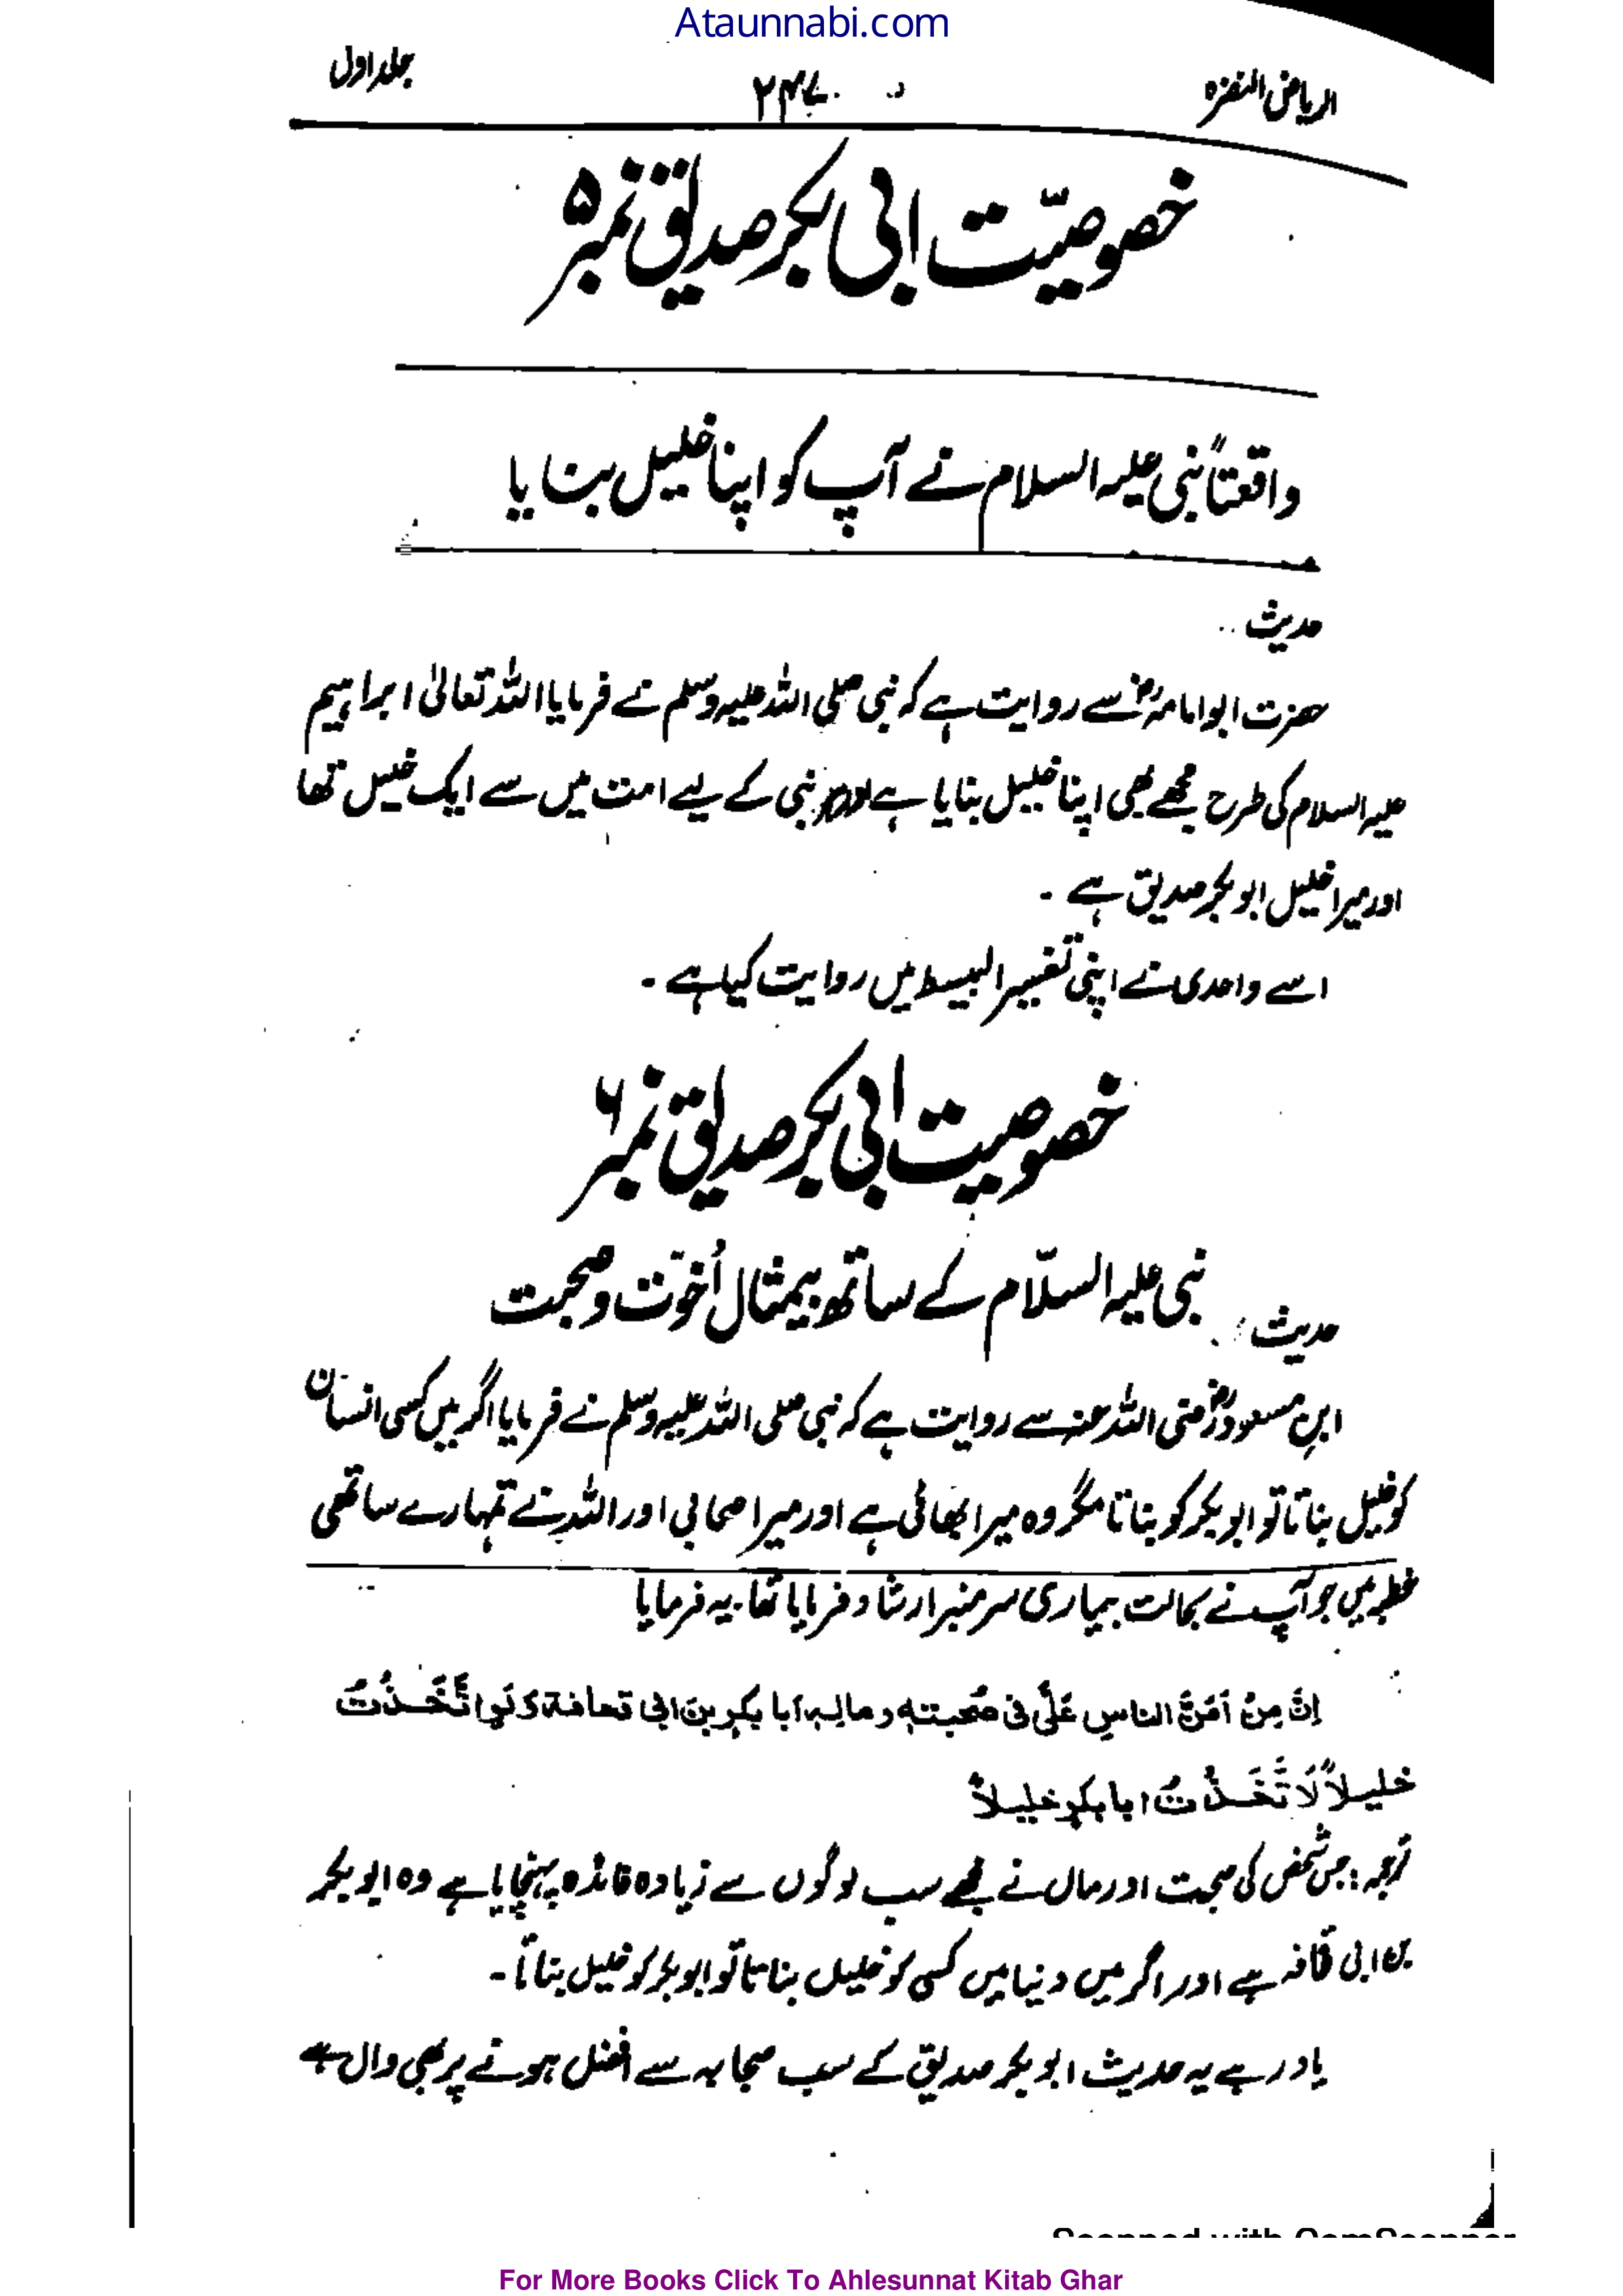 Ataunnabi.com
الریاض النضرہ ۲۴۷ جلد اول
خصوصیّت ابی بکر صدیق نمبر ۵
واقعتاً نبی علیہ السلام نے آپ کو اپنا خلیل بنایا
حدیث
حضرت ابو امامہ رضؓ سے روایت ہے کہ نبی صلی اللہ علیہ وسلم نے فرمایا اللہ تعالیٰ ابراہیم
علیہ السلام کی طرح مجھے بھی اپنا خلیل بنایا ہے اور ہر نبی کے لیے امت میں سے ایک خلیل تھا
اور میرا خلیل ابو بکر صدیق ہے ۔
اسے واحدی نے اپنی تفسیر البسیط میں روایت کیا ہے ۔
خصوصیت ابی بکر صدیق نمبر ۶
نبی علیہ السلّام کے ساتھ بیمثال اُخوّت و محبت
حدیث
ابنِ مسعود رضی اللہ عنہ سے روایت ہے کہ نبی صلی اللہ علیہ وسلم نے فرمایا اگر میں کسی انسان
کو خلیل بناتا تو ابو بکر کو بناتا مگر وہ میرا بھائی ہے اور میرا صحابی اور اللہ نے تمہارے ساتھی
خطبہ میں جو آپ نے بحالت بیماری سر منبر ارشاد فرمایا تھا۔ یہ فرمایا
اِنَّ مِنْ اَمَنَّ الناسِ عَلَیَّ فی صُحبتہٖ و مالہٖ اَبا بکرِ بنَ ابی قحافۃ وَلَوِ اتَّخَذْتُ
خلیلاً لَا تَّخَذْتُ ابا بکرٍ خلیلاً
ترجمہ : جس شخص کی صحبت اور مال نے مجھے سب لوگوں سے زیادہ فائدہ پہنچایا ہے وہ ابو بکر
بن ابی قحافہ ہے اور اگر میں دنیا میں کسی کو خلیل بناتا تو ابو بکر کو خلیل بناتا ۔
یاد رہے یہ حدیث ابو بکر صدیق کے سب صحابہ سے افضل ہونے پر بھی دال ہے
Scanned with CamScanner
For More Books Click To Ahlesunnat Kitab Ghar